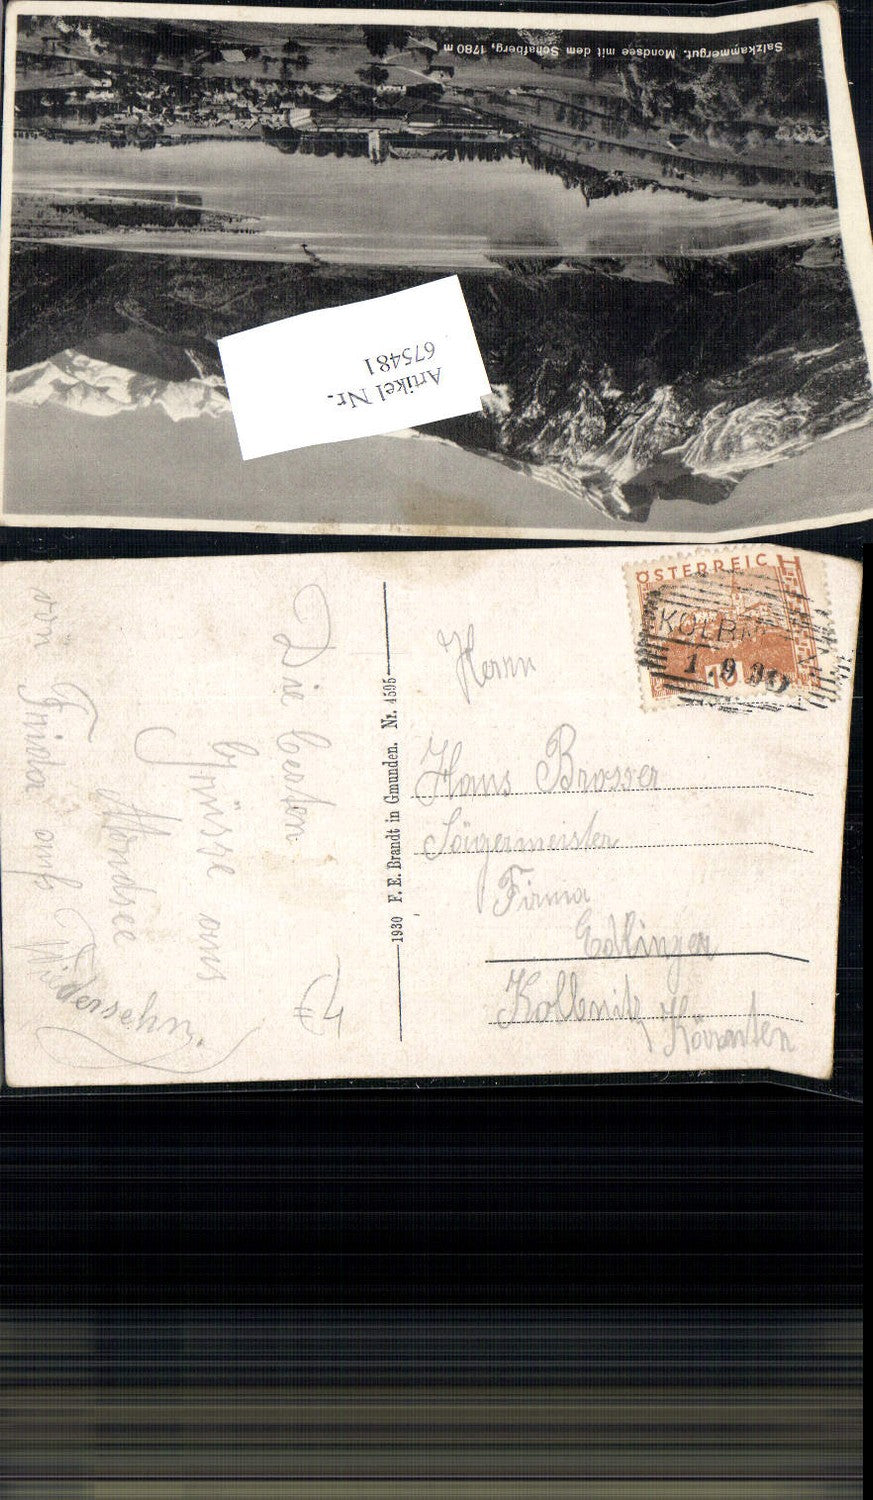 Salzkammergut. Mondsee mit dem Schafberg, 1780 m
Artikel Nr.
675481
ÖSTERREIC
10
1.9.30
Herrn
Hans Brosser
Sägermeister
Firma
Edlinger
Kolbnitz
Kärnten
1930 F. E. Brandt in Gmunden. Nr. 4595
Die besten
Grüsse aus
Mondsee
von Frieda auf
Wiedersehn